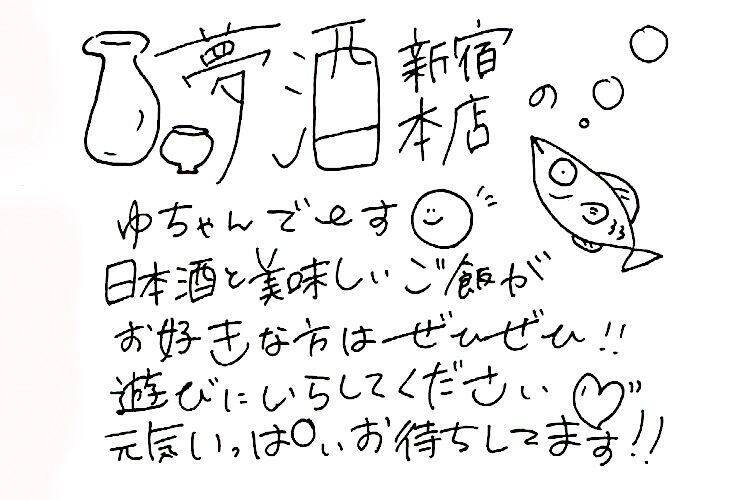 夢酒 新宿本店の
ゆちゃんでーす
日本酒と美味しいご飯が
お好きな方はぜひぜひ!!
遊びにいらしてください
元気いっぱいお待ちしてます!!